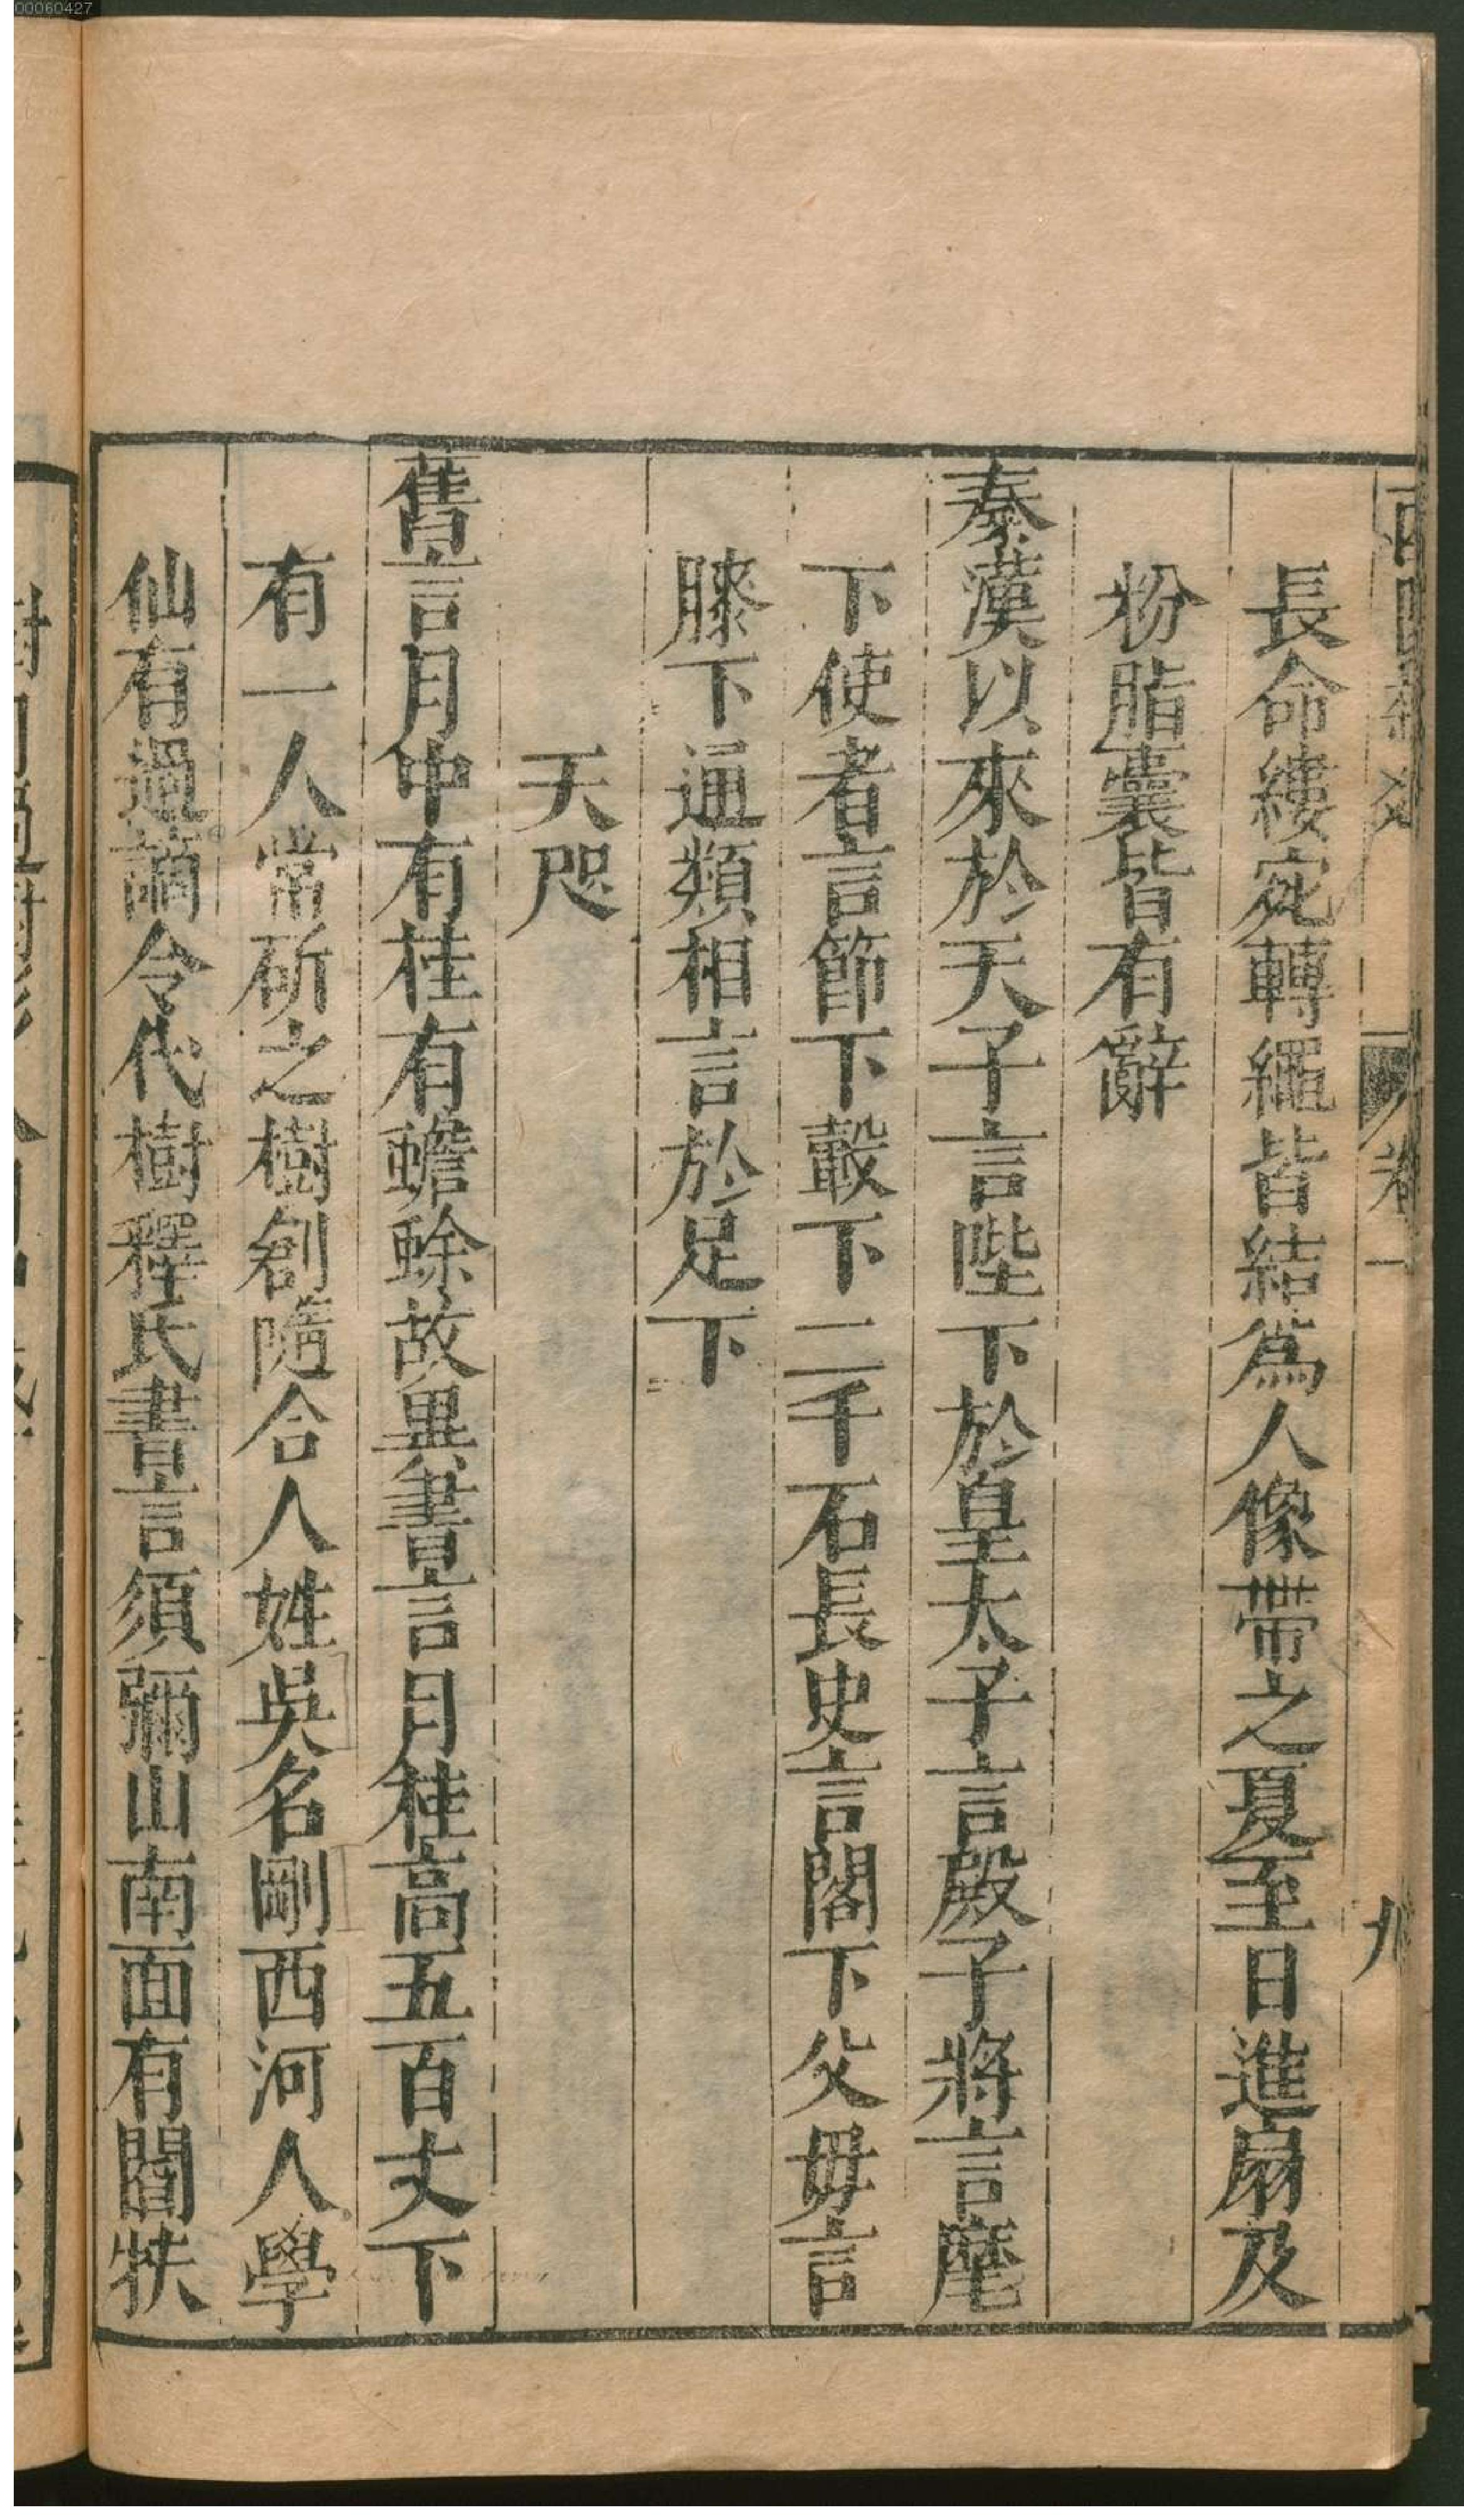 00060427
卷一
九
長命縷宛轉繩皆結爲人像帶之夏至日進扇及
粉脂囊皆有辭
秦漢以來於天子言陛下於皇太子言殿子將言麾
下使者言節下轂下二千石長史言閣下父毋言
膝下通類相言於足下
天咫
舊言月中有桂有蟾蜍故異書言月桂高五百丈下
有一人常斫之樹創隨合人姓吳名剛西河人學
仙有過謫令伐樹釋氏書言須彌山南面有閻扶